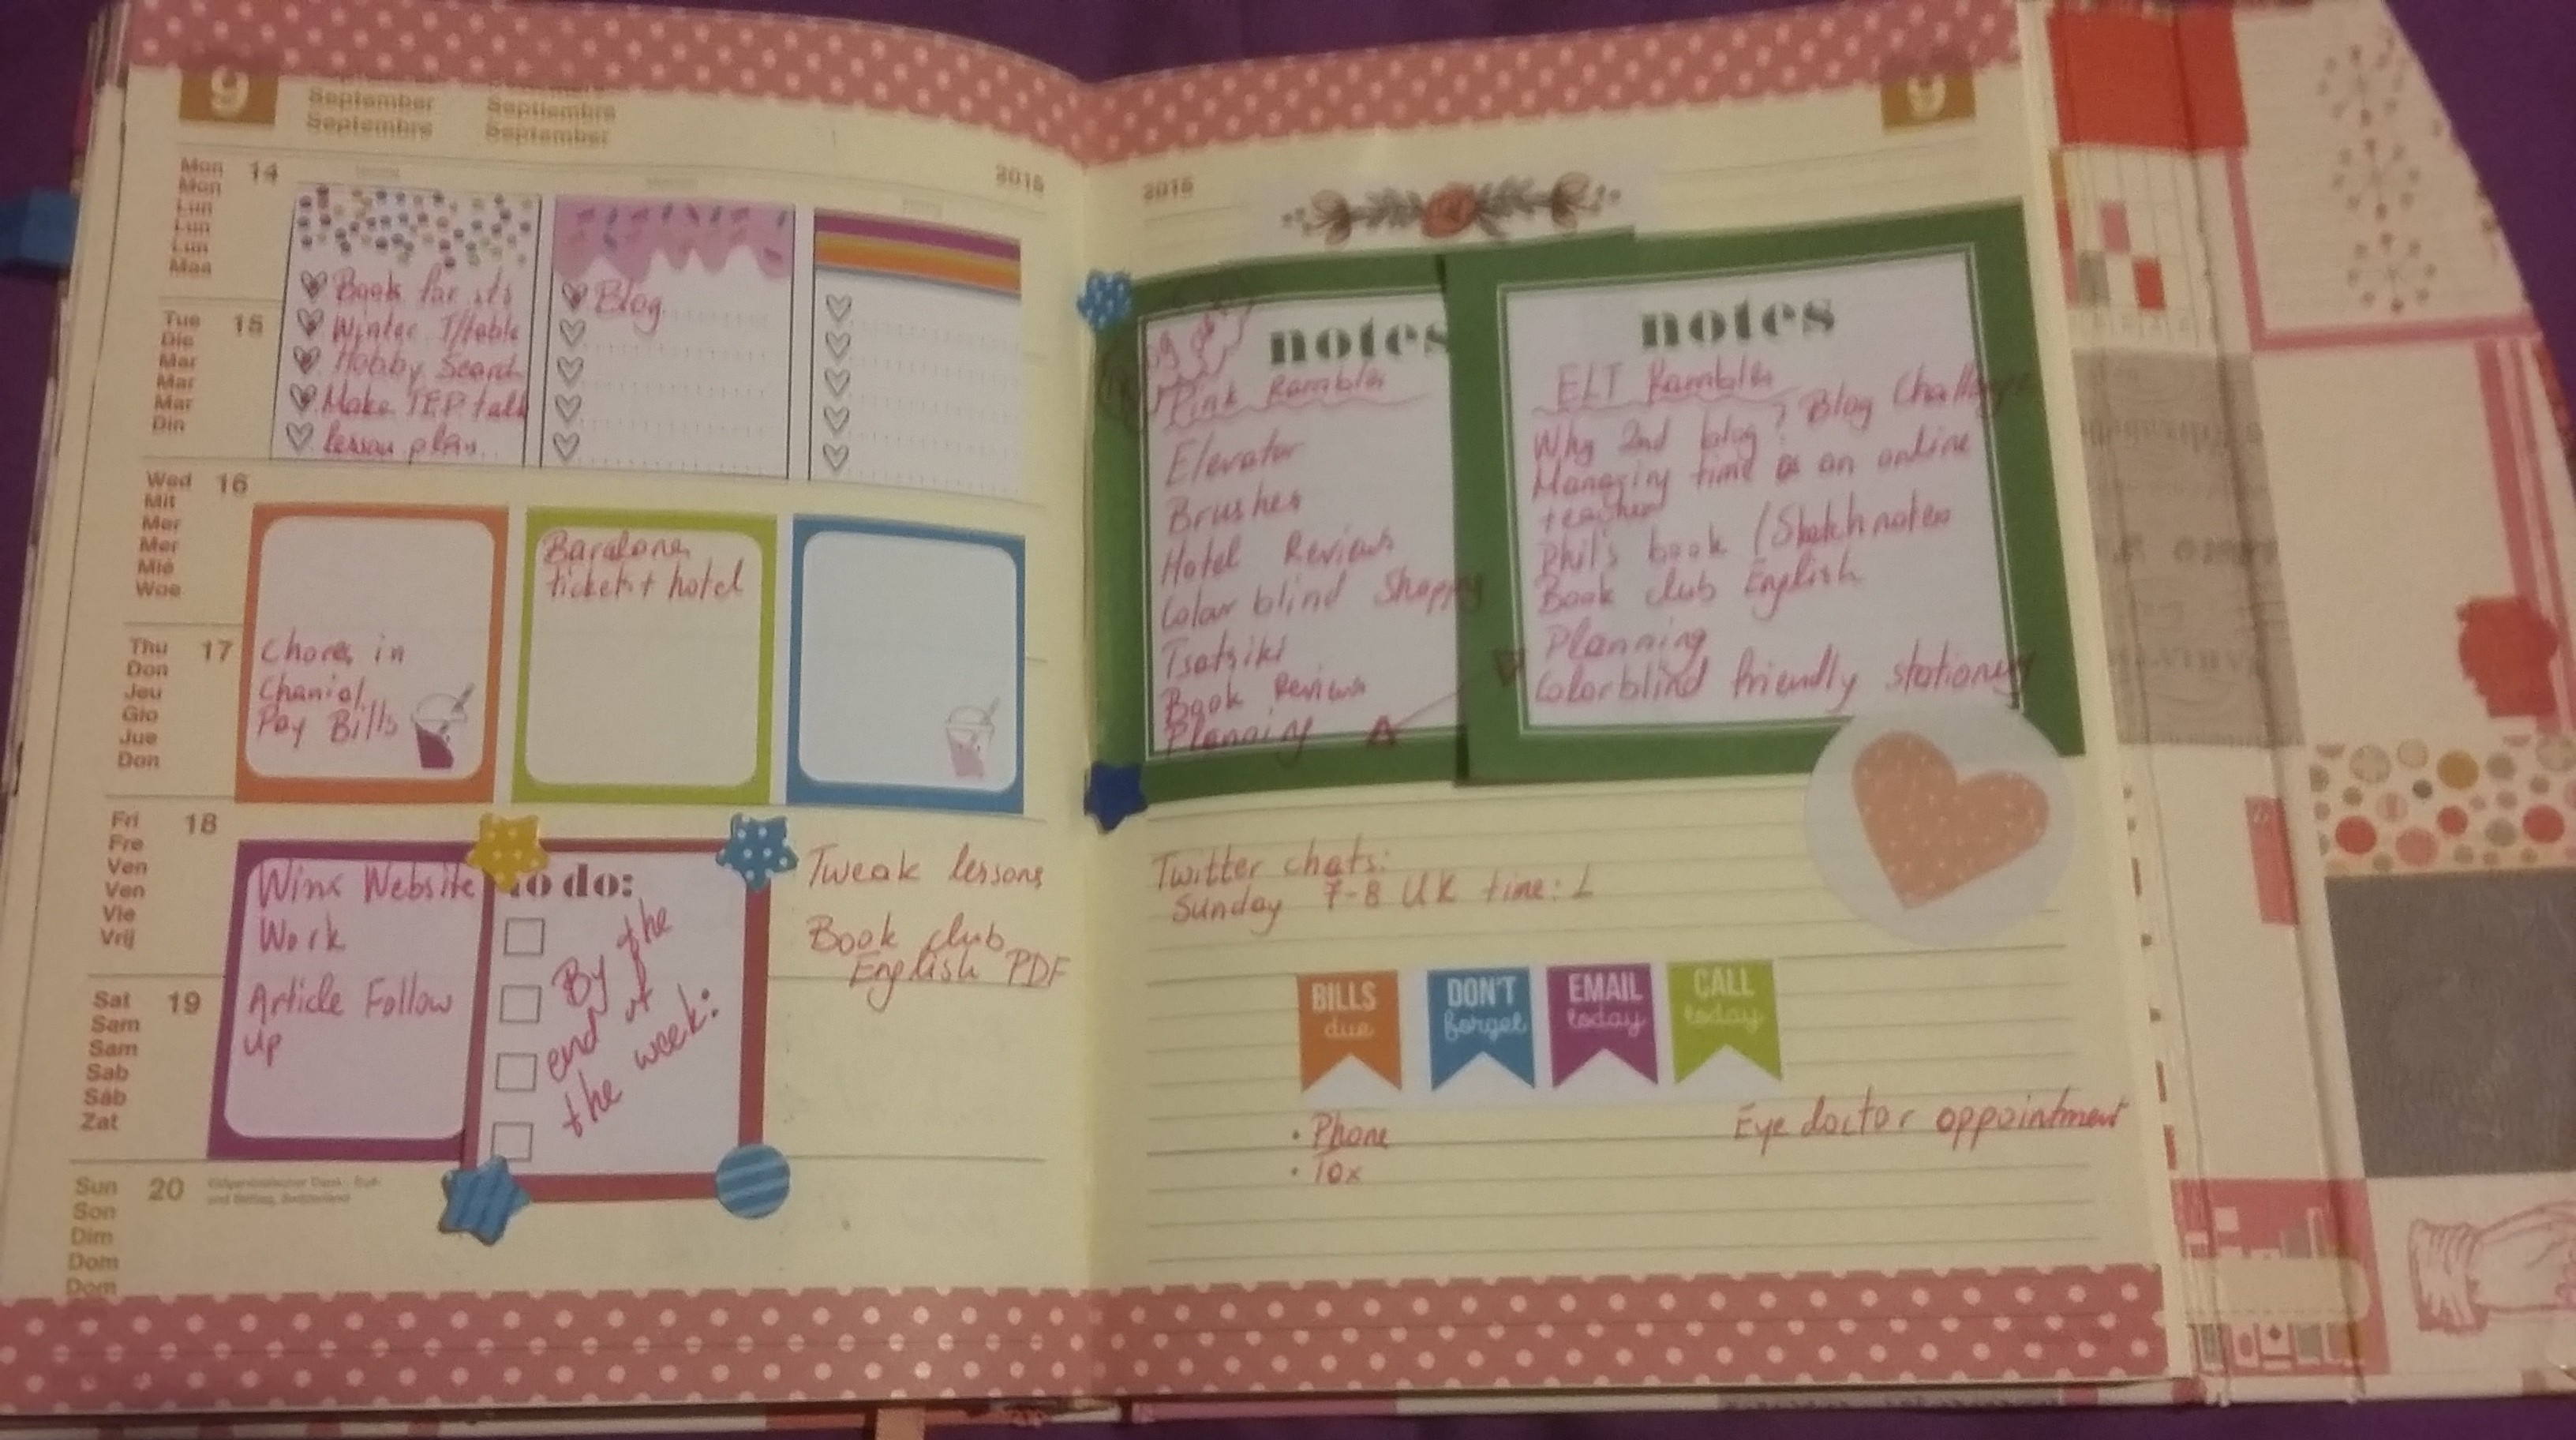 9
September
Septembre
Septiembre
September
2015
Mon 14
Mon
Lun
Lun
Lun
Maa
Book for
Winter T/table
Hobby Search
Make TEP talk
lesson plan
Blog
Tue 15
Die
Mar
Mar
Mar
Din
Wed 16
Mit
Mer
Mer
Mié
Woe
Thu 17
Don
Jeu
Gio
Jue
Don
Chores in
Pay Bills
ticket + hotel
Fri 18
Fre
Ven
Ven
Vie
Vrij
Sat 19
Sam
Sam
Sab
Sáb
Zat
Website
Work
Article Follow
up
To do:
By the
end of
the week:
Tweak lessons
Book club
English PDF
Sun 20
Son
Dim
Dom
Dom
2015
9
notes
Pink Rambler
Elevator
Brushes
Hotel Reviews
Colour blind
Tsatsiki
Book Reviews
notes
ELT Rambler
Why 2nd blog? Blog Challenge
Managing time as an online
teacher
Phil's book / Sketchnotes
Book club English
Planning
Colorblind friendly stationery
Twitter chats:
Sunday 7-8 UK time:
BILLS
due
DON'T
forget
EMAIL
today
CALL
today
• Phone
• Tax
Eye doctor appointment